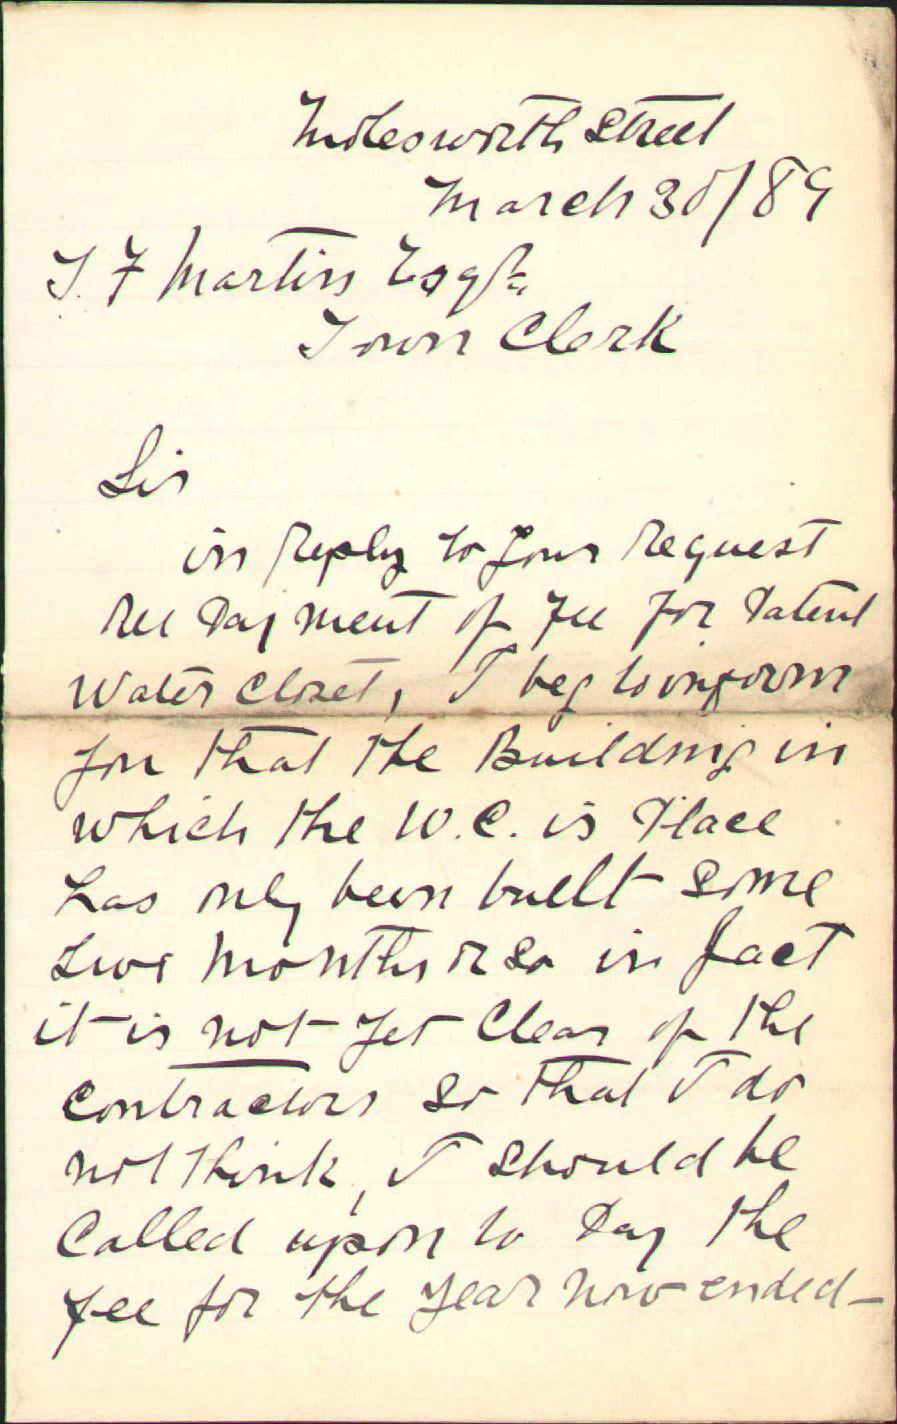 Molesworth Street
March 30/89
T. F Martin Esqre.
Town Clerk
Sir
in Reply to your Request
Re Payment of Fee for Patent
Water Closet, I beg to inform
you that the Building in
which the W.C. is Place
has only been built some
two months or so in fact
it is not yet Clear of the
contractors so that I do
not think, I should be
Called upon to Pay the
fee for the year now ended—